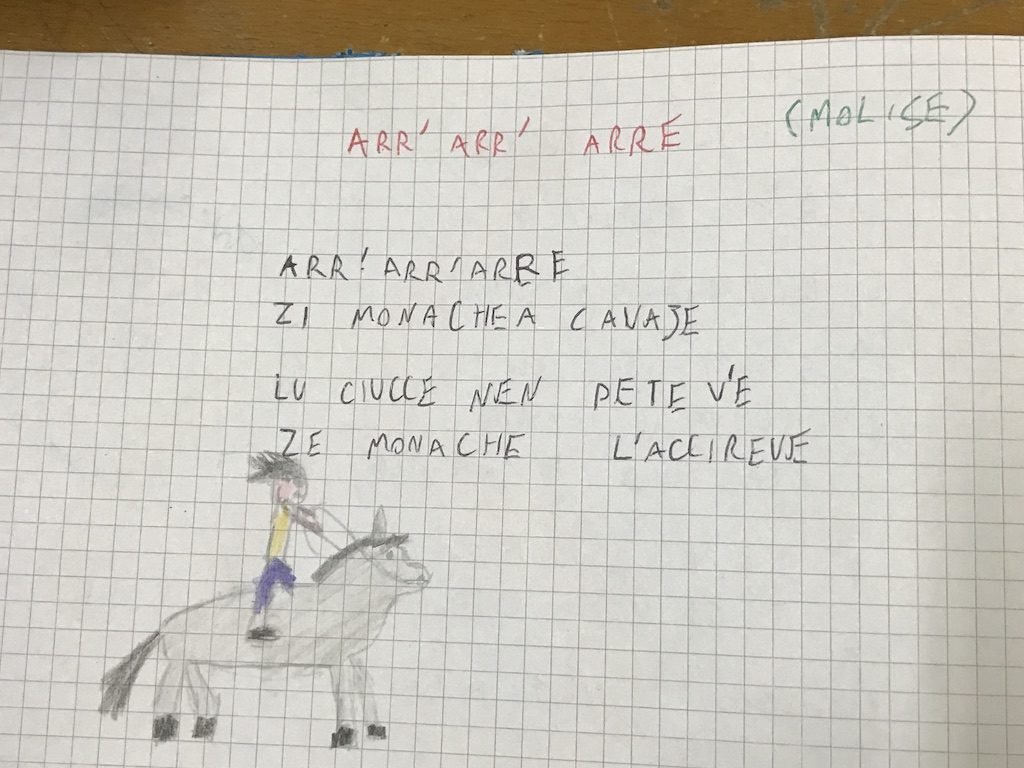 ARR' ARR' ARRE (MOLISE)
ARR' ARR' ARRE
ZI MONACHE A CAVAJE
LU CIUCCE NEN PETE V'E
ZE MONACHE L'ACCIREVE